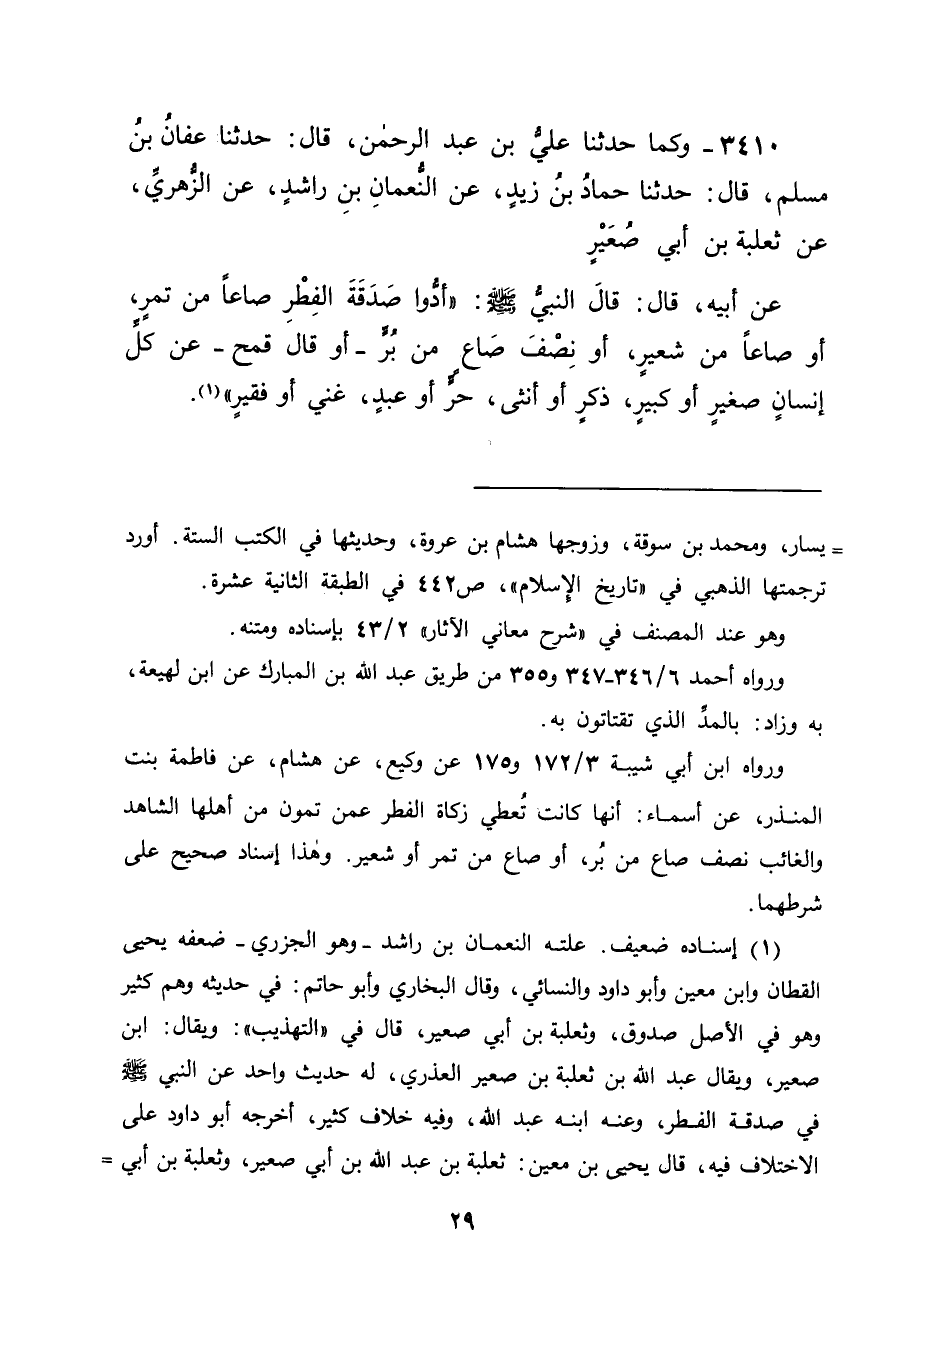 ٣٤١٠ ـ وكما حدثنا عليُّ بن عبد الرحمٰن، قال: حدثنا عفانُ بنُ
مسلم، قال: حدثنا حمادُ بنُ زيدٍ، عن النُّعمانِ بنِ راشدٍ، عن الزُّهريِّ،
عن ثعلبة بن أبي صُعَيْرٍ
عن أبيه، قال: قالَ النبيُّ ﷺ: «أدُّوا صَدَقَةَ الفِطْرِ صاعاً من تمرٍ،
أو صاعاً من شعيرٍ، أو نِصْفَ صَاعٍ من بُرٍّ ـ أو قال قمح ـ عن كلِّ
إنسانٍ صغيرٍ أو كبيرٍ، ذكرٍ أو أنثى، حرٍّ أو عبدٍ، غني أو فقيرٍ»(١).
= يسار، ومحمد بن سوقة، وزوجها هشام بن عروة، وحديثها في الكتب الستة. أورد
ترجمتها الذهبي في «تاريخ الإسلام»، ص٤٤٢ في الطبقة الثانية عشرة.
وهو عند المصنف في «شرح معاني الآثار» ٤٣/٢ بإسناده ومتنه.
ورواه أحمد ٣٤٦/٦ـ٣٤٧ و٣٥٥ من طريق عبد الله بن المبارك عن ابن لهيعة،
به وزاد: بالمدِّ الذي تقتاتون به.
ورواه ابن أبي شيبة ١٧٢/٣ و١٧٥ عن وكيع، عن هشام، عن فاطمة بنت
المنذر، عن أسماء: أنها كانت تُعطي زكاة الفطر عمن تمون من أهلها الشاهد
والغائب نصف صاع من بُر، أو صاع من تمر أو شعير. وهٰذا إسناد صحيح على
شرطهما.
(١) إسناده ضعيف. علته النعمان بن راشد ـ وهو الجزري ـ ضعفه يحيى
القطان وابن معين وأبو داود والنسائي، وقال البخاري وأبو حاتم: في حديثه وهم كثير
وهو في الأصل صدوق، وثعلبة بن أبي صعير، قال في «التهذيب»: ويقال: ابن
صعير، ويقال عبد الله بن ثعلبة بن صعير العذري، له حديث واحد عن النبي ﷺ
في صدقة الفطر، وعنه ابنه عبد الله، وفيه خلاف كثير، أخرجه أبو داود على
الاختلاف فيه، قال يحيى بن معين: ثعلبة بن عبد الله بن أبي صعير، وثعلبة بن أبي =
٢٩